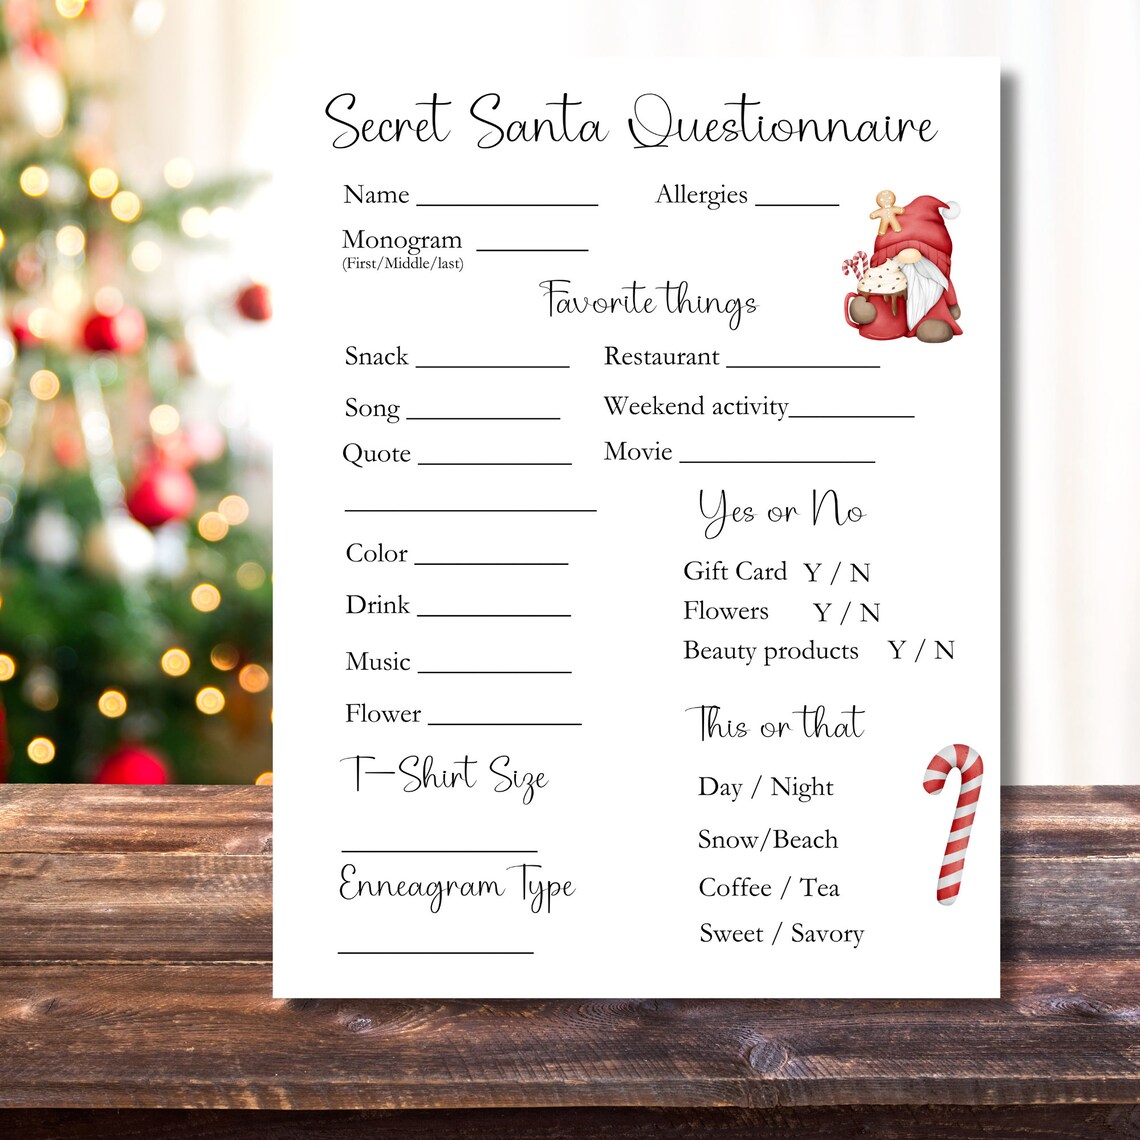 Secret Santa Questionnaire
Name ____________ Allergies ______
Monogram ________
(First/Middle/last)
Favorite things
Snack ___________ Restaurant ___________
Song ___________ Weekend activity_________
Quote ___________ Movie ______________
__________________
Yes or No
Color ___________
Gift Card Y / N
Drink ___________
Flowers Y / N
Beauty products Y / N
Music ___________
Flower ___________
This or that
T-Shirt Size
Day / Night
______________
Snow/Beach
Enneagram Type
Coffee / Tea
______________
Sweet / Savory